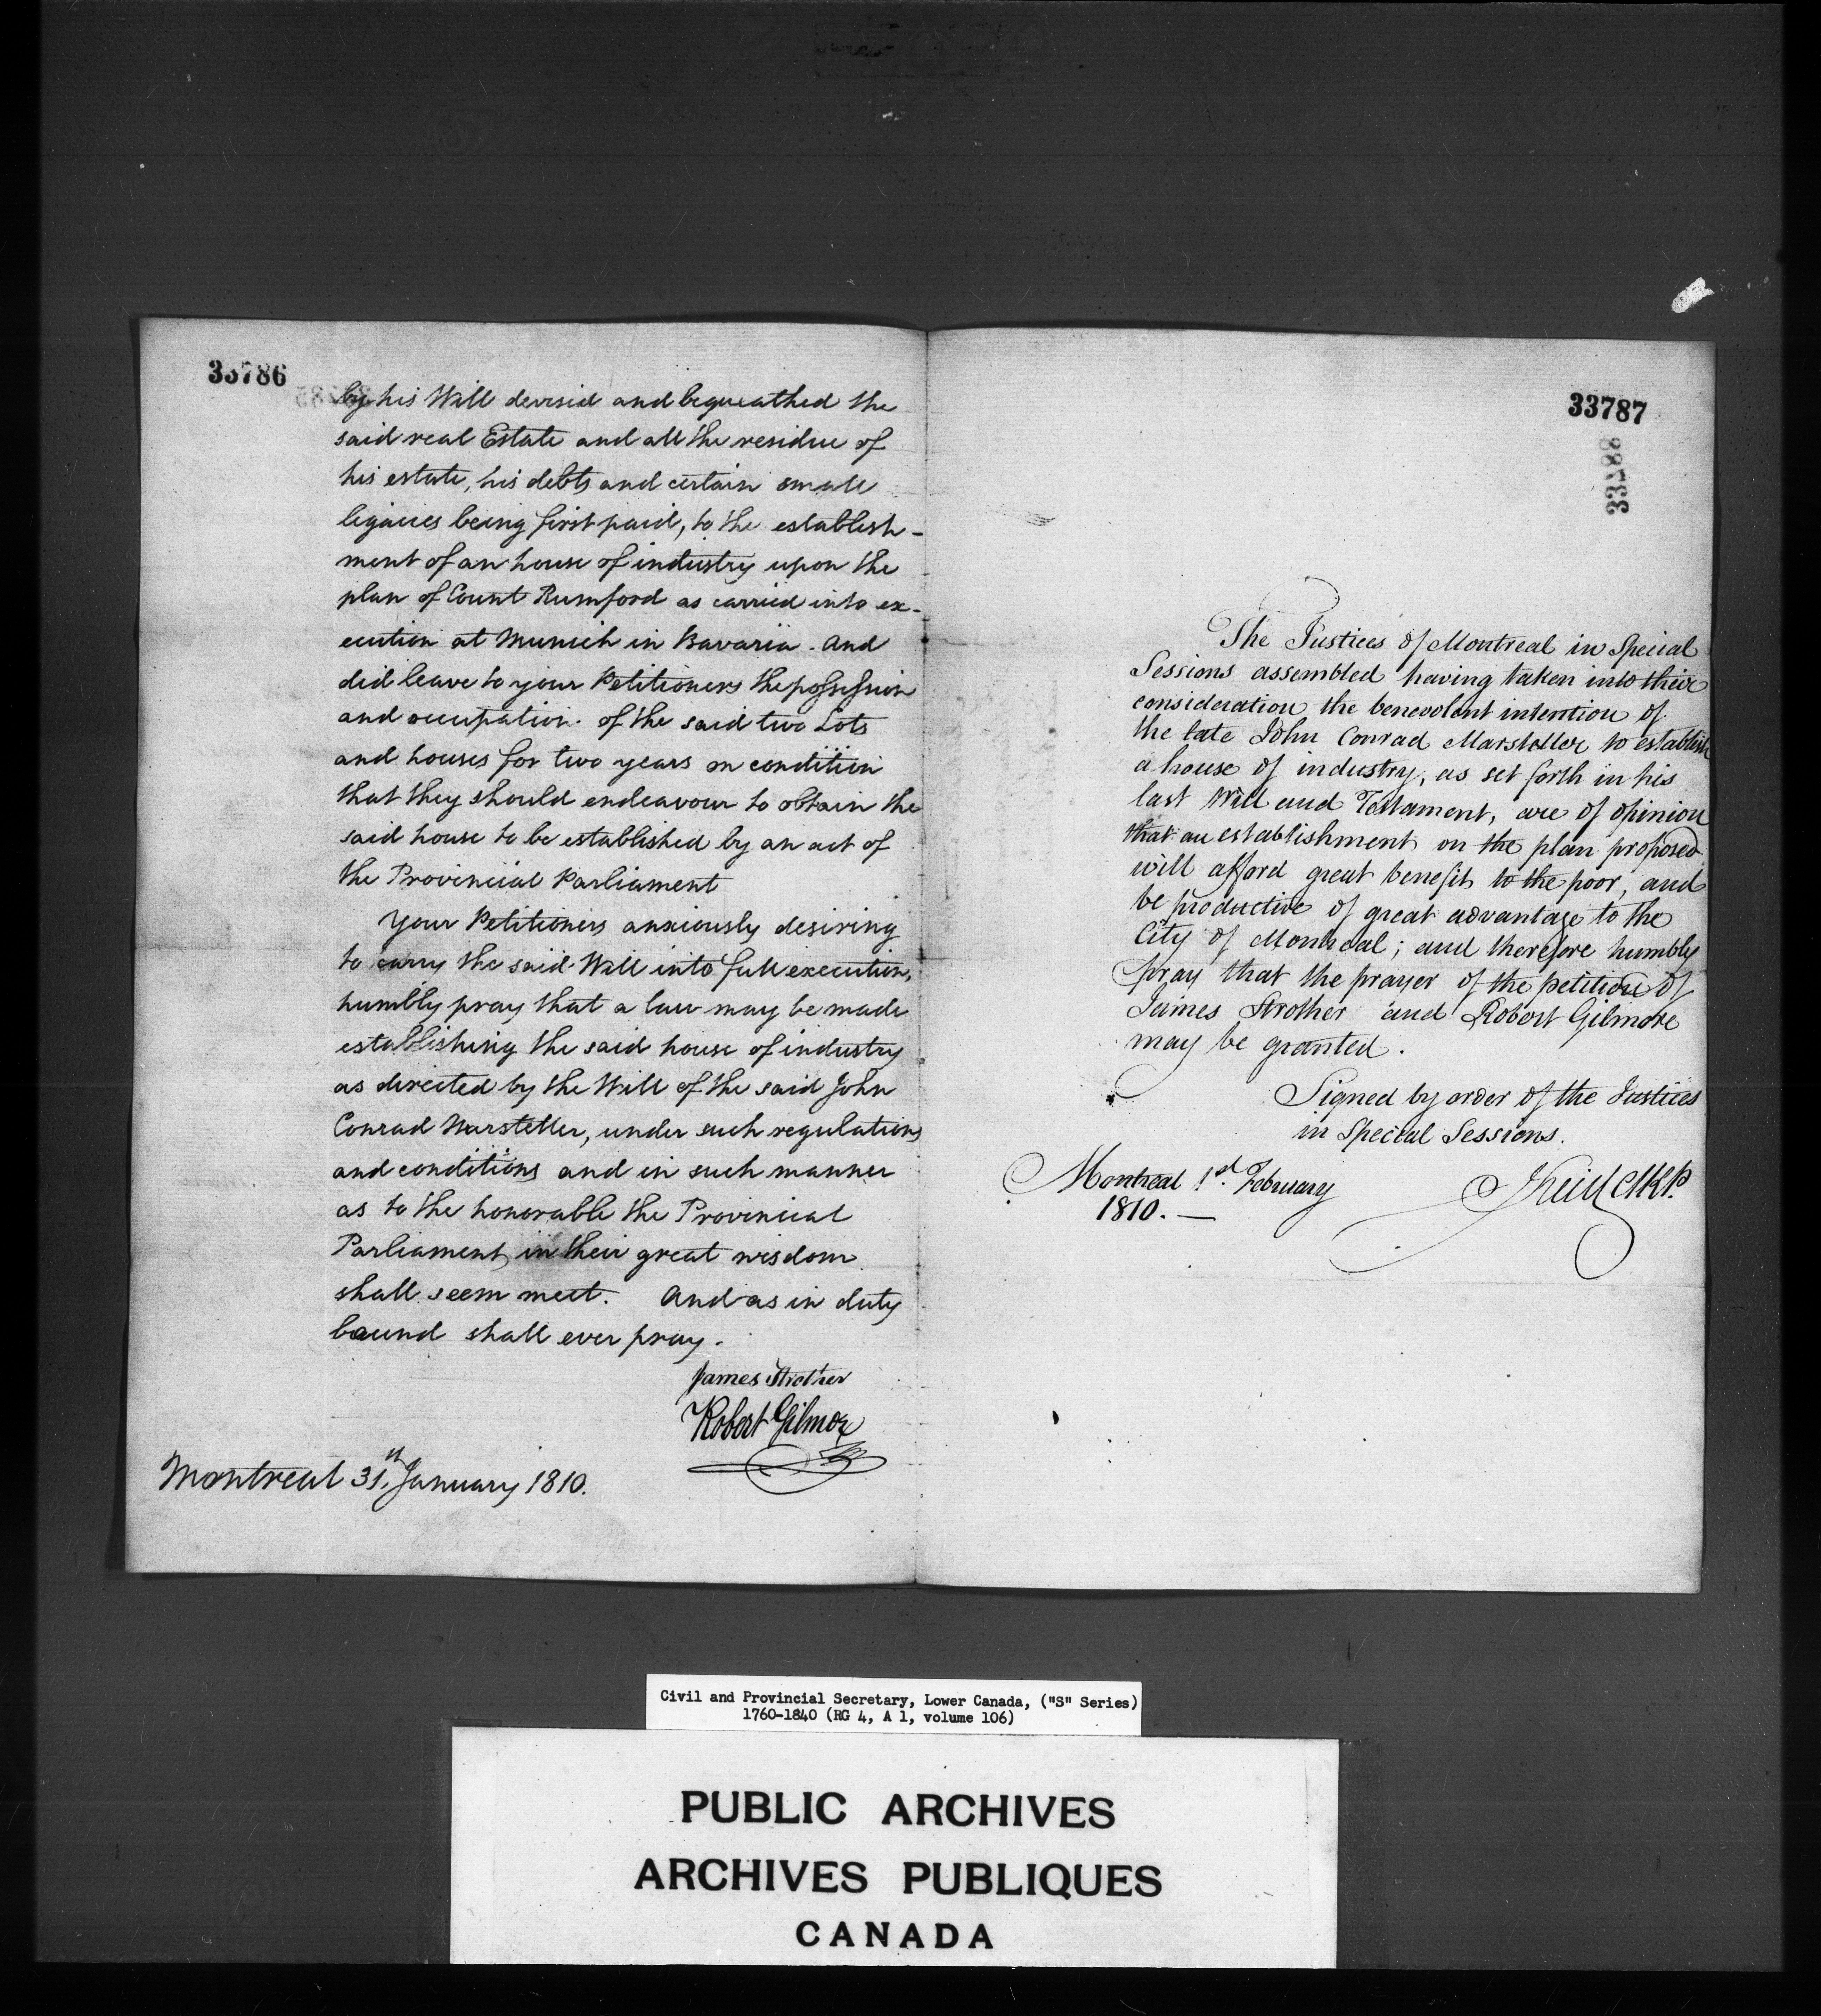 33786
by his Will devised and bequeathed the
said real Estate and all the residue of
his estate, his debts and certain small
legacies being first paid, to the establish-
ment of an house of industry upon the
plan of Count Rumford as carried into ex-
ecution at Munich in Bavaria. And
did leave to your Petitioners the possession
and occupation of the said two Lots
and houses for two years on condition
that they should endeavour to obtain the
said house to be established by an act of
the Provincial Parliament
Your Petitioners anxiously desiring
to carry the said Will into full execution,
humbly pray that a law may be made
establishing the said house of industry
as directed by the Will of the said John
Conrad Marsteller, under such regulations
and conditions and in such manner
as to the honorable the Provincial
Parliament in their great wisdom
shall seem meet. And as in duty
bound shall ever pray.
James Strother
Robert Gilmor
Montreal 31th January 1810.
33787
33788
The Justices of Montreal in Special
Sessions assembled having taken into their
consideration the benevolent intention of
the late John Conrad Marsteller to establish
a house of industry, as set forth in his
last Will and Testament, are of opinion
that an establishment on the plan proposed
will afford great benefit to the poor, and
be productive of great advantage to the
City of Montreal; and therefore humbly
pray that the prayer of the petition of
James Strother and Robert Gilmore
may be granted.
Signed by order of the Justices
in Special Sessions.
Montreal 1st. February
1810. —
Civil and Provincial Secretary, Lower Canada, ("S" Series)
1760-1840 (RG 4, A 1, volume 106)
PUBLIC ARCHIVES
ARCHIVES PUBLIQUES
CANADA